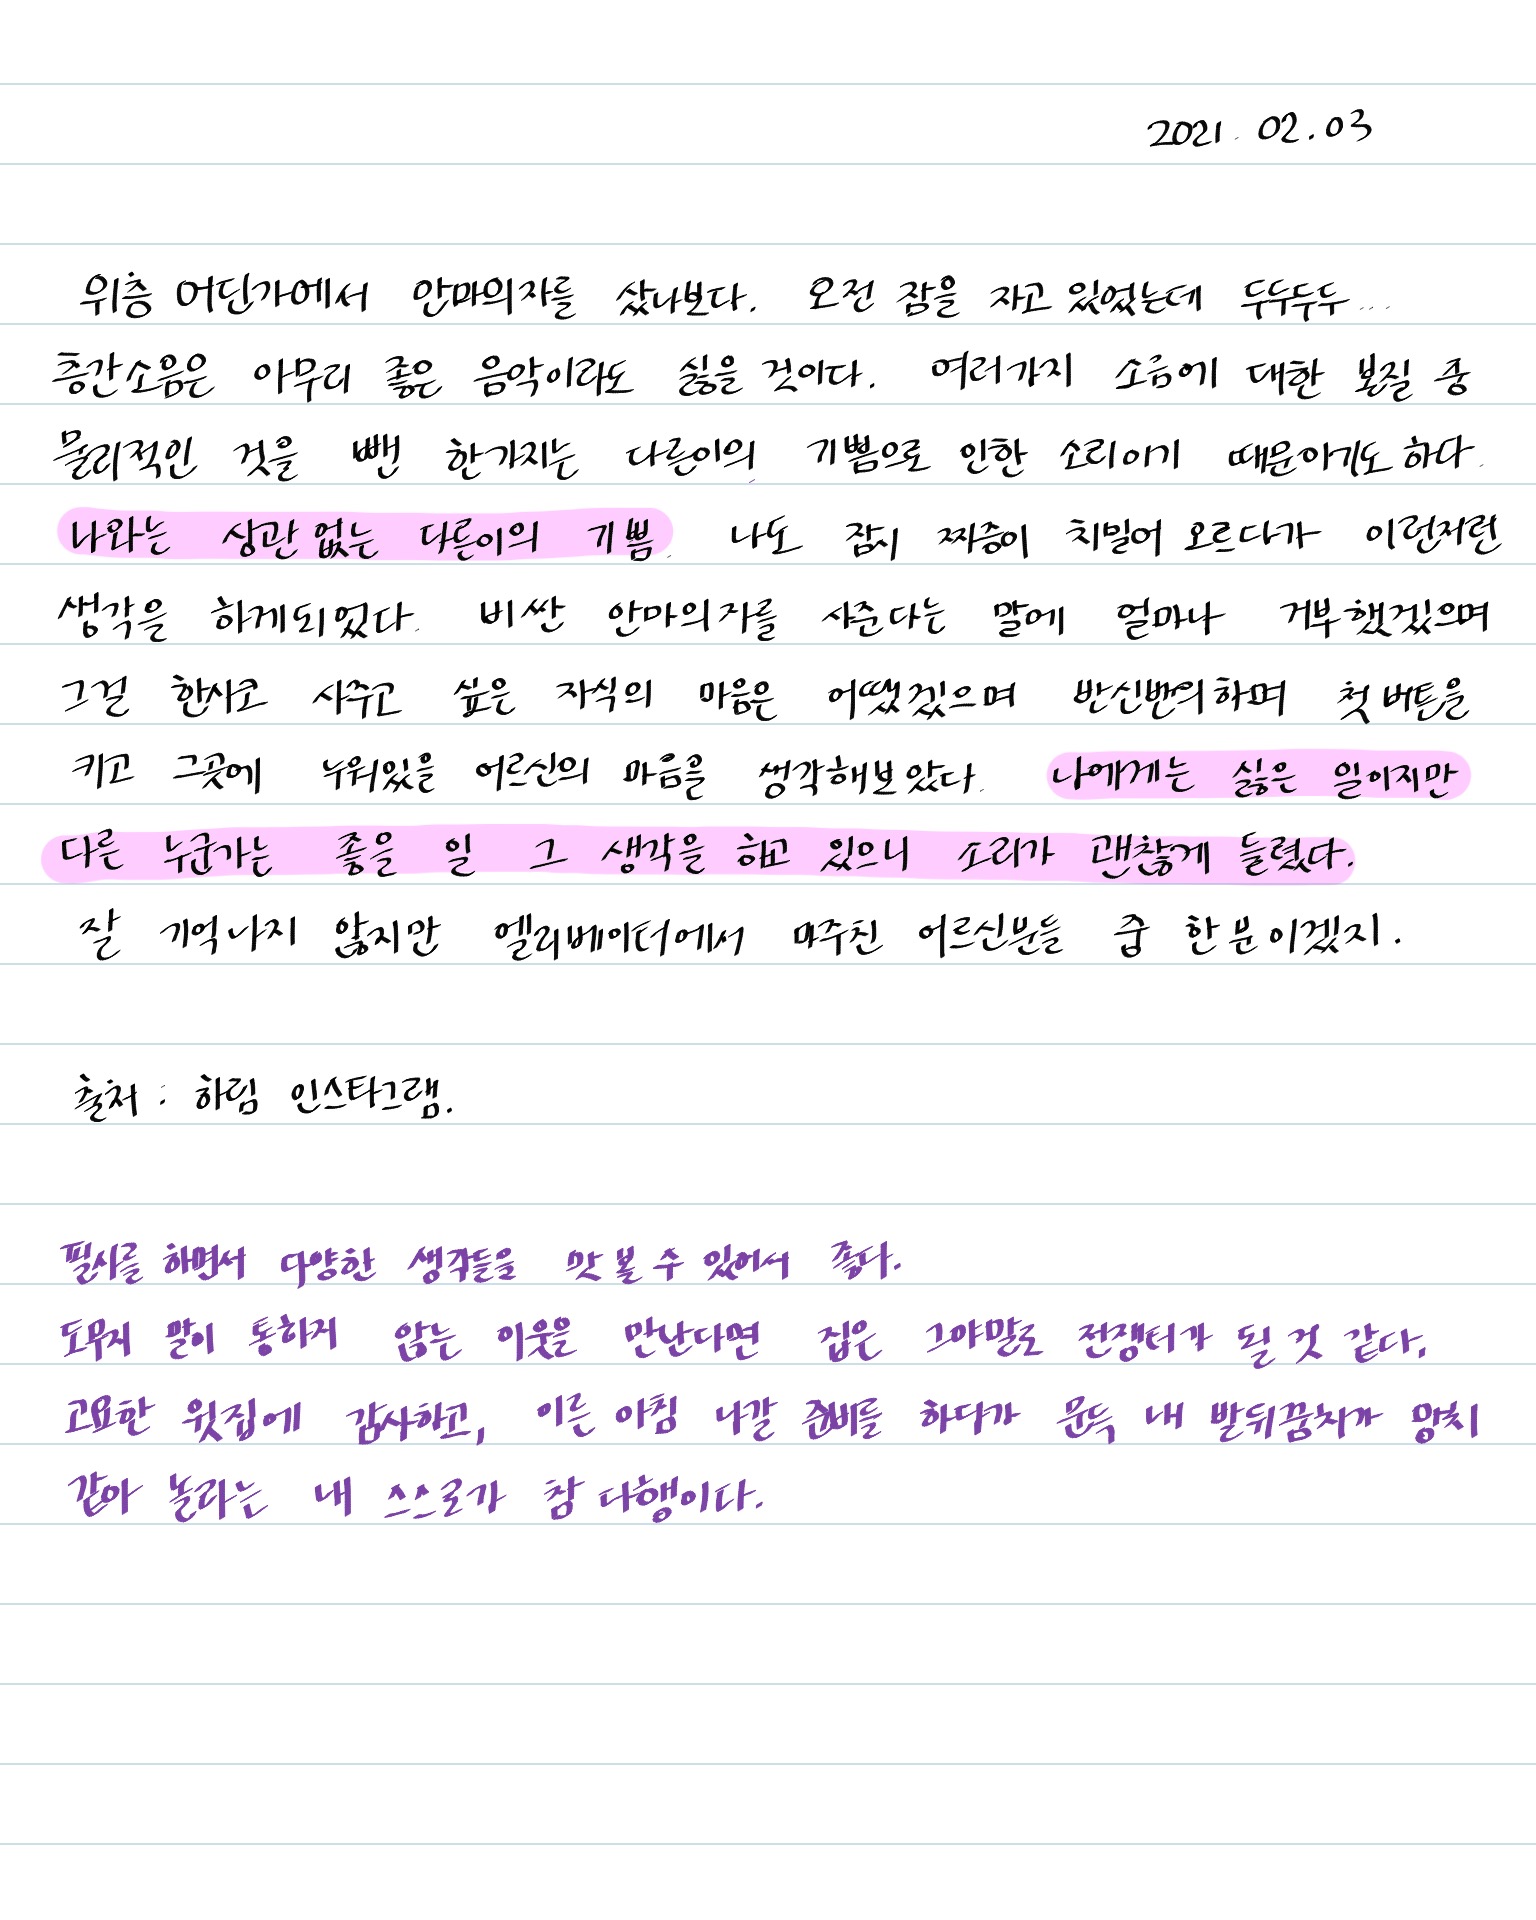 2021. 02.03
위층 어딘가에서 안마의자를 샀나보다. 오전 잠을 자고 있었는데 두두두두...
층간소음은 아무리 좋은 음악이라도 싫을 것이다. 여러가지 소음에 대한 본질 중
물리적인 것을 뺀 한가지는 다른이의 기쁨으로 인한 소리이기 때문이기도 하다.
나와는 상관없는 다른이의 기쁨. 나도 잠시 짜증이 치밀어 오르다가 이런저런
생각을 하게되었다. 비싼 안마의자를 사준다는 말에 얼마나 거부했겠으며
그걸 한사코 사주고 싶은 자식의 마음은 어땠겠으며 반신반의하며 첫 버튼을
키고 그곳에 누워있을 어르신의 마음을 생각해보았다. 나에게는 싫은 일이지만
다른 누군가는 좋을 일 그 생각을 하고 있으니 소리가 괜찮게 들렸다.
잘 기억나지 않지만 엘리베이터에서 마주친 어르신분들 중 한 분이겠지.
출처 : 하림 인스타그램.
필사를 하면서 다양한 생각들을 맛 볼 수 있어서 좋다.
도무지 말이 통하지 않는 이웃을 만난다면 집은 그야말로 전쟁터가 될 것 같다.
고요한 윗집에 감사하고, 이른 아침 나갈 준비를 하다가 문득 내 발뒤꿈치가 망치
같아 놀라는 내 스스로가 참 다행이다.